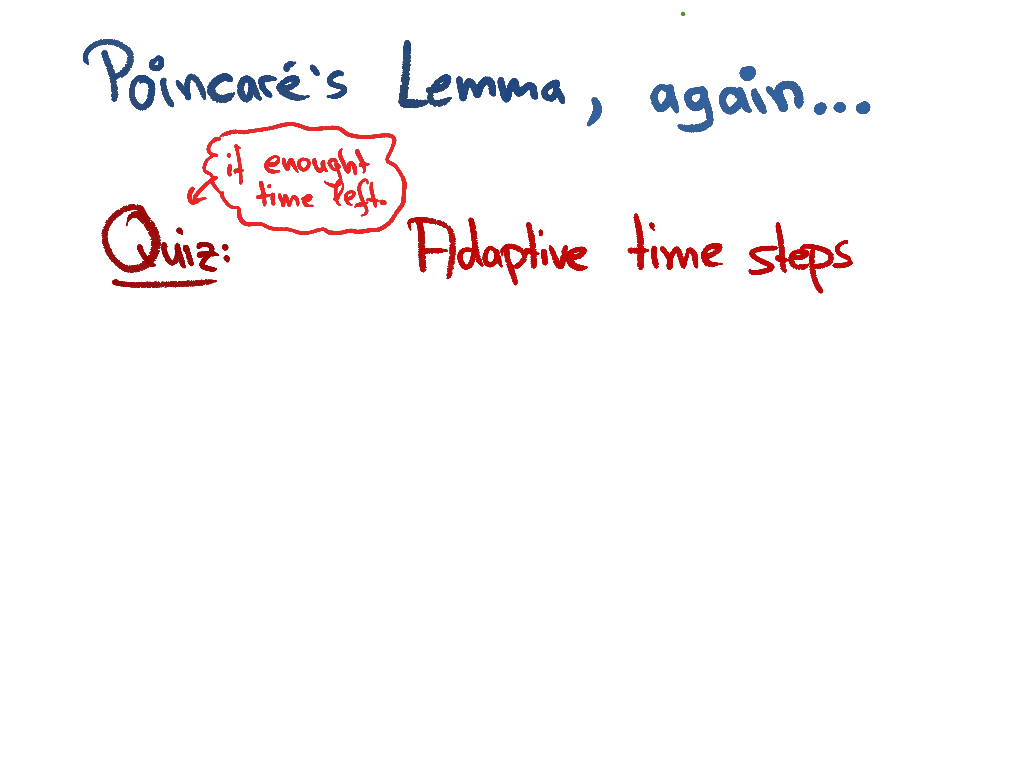 Poincaré's Lemma, again...
if enought
time left.
Quiz: Adaptive time steps